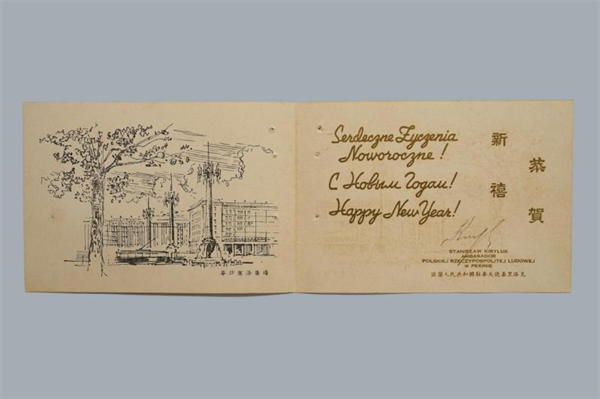 華沙憲法廣場
Serdeczne Życzenia
Noworoczne!
С Новым Годом!
Happy New Year!
恭賀
新禧
STANISŁAW KIRYLUK
AMBASADOR
POLSKIEJ RZECZYPOSPOLITEJ LUDOWEJ
W PEKINIE
波蘭人民共和國駐華大使基里洛克